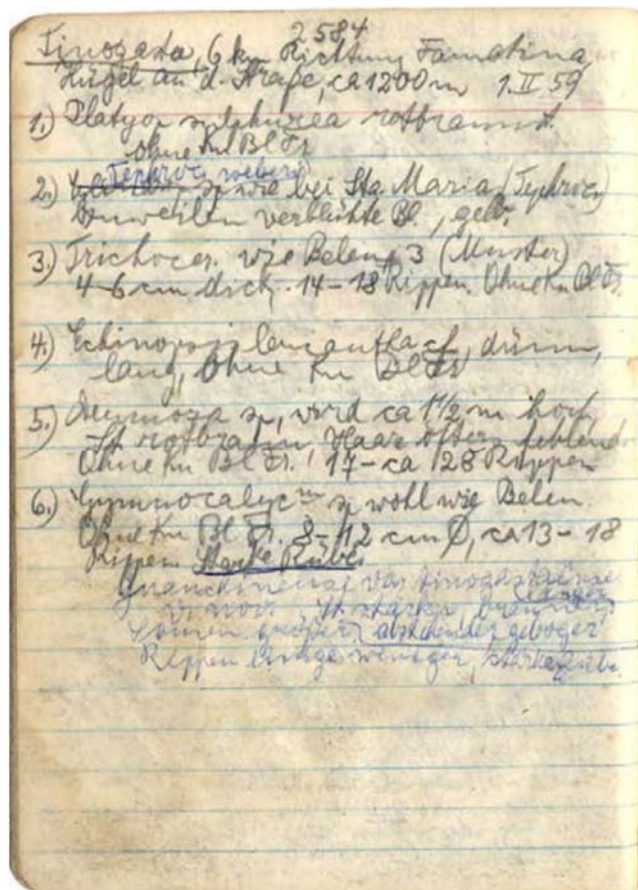 2584
Tinogasta, 6 km Richtung Famatina
Hügel an d. Straße, ca 1200 m 1.II 59
1.) Platyop sp rotbraun St.
ohne Kn Bl Fr
Tephroc. weberi
2.) sp wie bei Sta. Maria (Tephroc)
Bisweilen verblühte Bl., gelb.
3.) Trichocer. wie Belen 3 (Muster)
4-6 cm dick. 14-18 Rippen. Ohne Kn Bl Fr.
4.) Echinopsis leucantha cf, dünn,
lang, Ohne Kn Bl Fr
5.) Denmoza sp, wird ca 1 1/2 m hoch,
St rotbraun, Haare öfters fehlend
Ohne Kn Bl Fr. 17- ca 28 Rippen
6.) Gymnocalyc^um sp wohl wie Belen.
Ohne Kn Bl Fr. 8-12 cm Ø, ca 13-18
Rippen Starke Rübe
var tinogastaense
v. nov. St stärker,
Samen größer, abstehender gebogen
Rippen weniger,